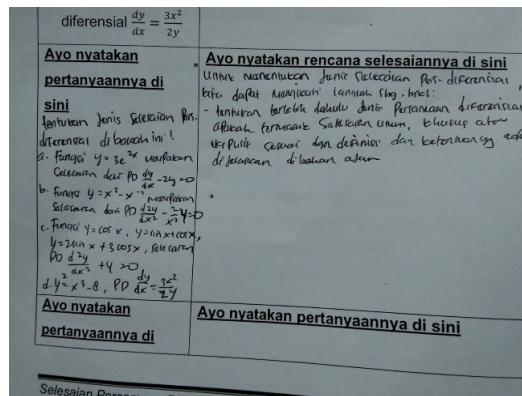 diferensial dy/dx = 3x²/2y
Ayo nyatakan
pertanyaannya di
sini
tentukan Jenis Selesaian Pers.
diferensial dibawah ini!
a. Fungsi y = 3e²ˣ merupakan
Selesaian dari PD dy/dx - 2y = 0
b. Fungsi y = x² - x⁻¹ merupakan
Selesaian dari PD d²y/dx² - 2/x² y = 0
c. Fungsi y = cos x, y = sin x + cos x,
y = 2 sin x + 3 cos x, selesaian
PD d²y/dx² + y = 0
d. y² = x³ - 8, PD dy/dx = 3x²/2y
Ayo nyatakan rencana selesaiannya di sini
Untuk menentukan Jenis Selesaian Pers. diferensial,
kita dapat mengikuti langkah sbg. brkt:
- tentukan terlebih dahulu Jenis Persamaan diferensial
apakah termasuk Selesaian umum, khusus atau
sesuai dgn definisi dan
Ayo nyatakan
pertanyaannya di
Ayo nyatakan pertanyaannya di sini
Selesaian